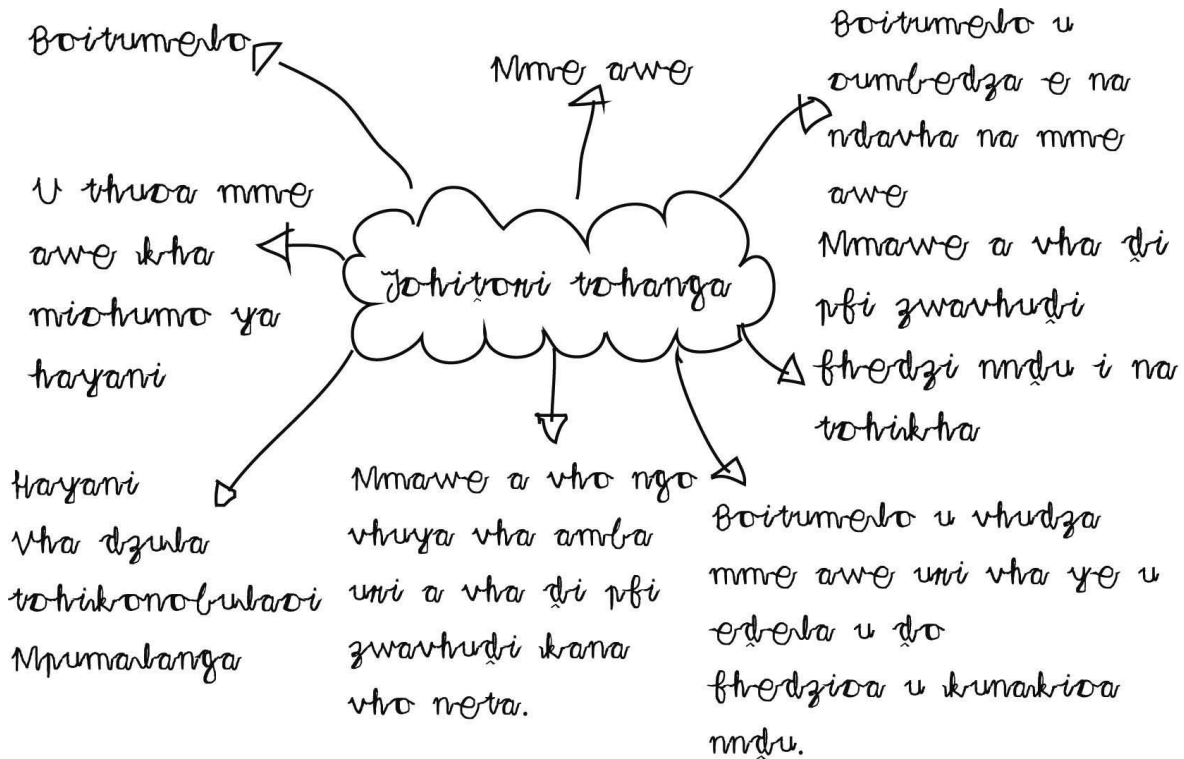 Boitumelo
Mme awe
Boitumelo u
sumbedza e na
ndavha na mme
awe
U thusa mme
awe kha
mishumo ya
hayani
Tshiṱori tshanga
Mmawe a vha ḓi
pfi zwavhuḓi
fhedzi nnḓu i na
tshikha
Hayani
Vha dzula
tshikonobulasi
Mpumalanga
Mmawe a vho ngo
vhuya vha amba
uri a vha ḓi pfi
zwavhuḓi kana
vho neta.
Boitumelo u vhudza
mme awe uri vha ye u
eḓela u ḓo
fhedzisa u kunakisa
nnḓu.